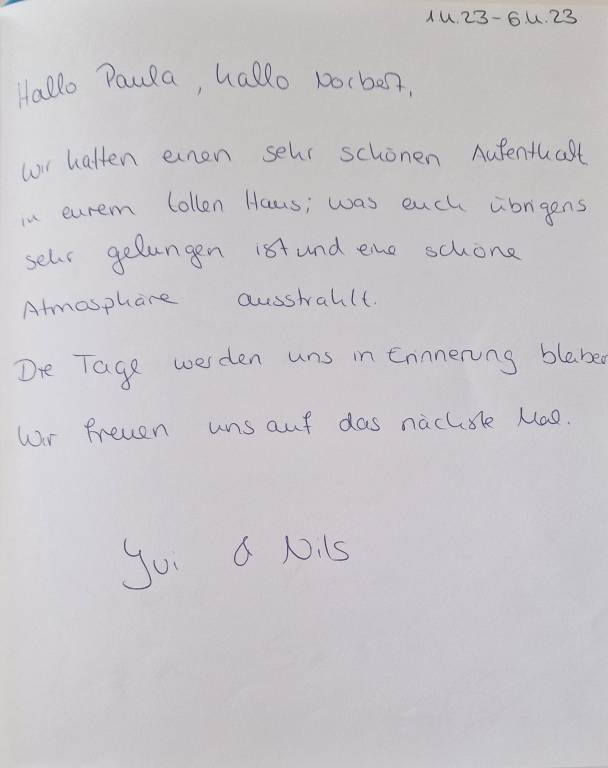 1.4.23-6.4.23
Hallo Paula, hallo Norbert,
wir hatten einen sehr schönen Aufenthalt
in eurem tollen Haus; was euch übrigens
sehr gelungen ist und eine schöne
Atmosphäre ausstrahlt.
Die Tage werden uns in Erinnerung bleiben
Wir freuen uns auf das nächste Mal.
& Nils